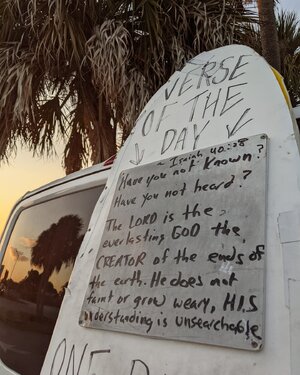 VERSE
OF THE
DAY
~ Isaiah 40:28
Have you not Known?
Have you not heard?
The LORD is the
everlasting GOD the
CREATOR of the ends of
the earth. He does not
faint or grow weary, HIS
understanding is unsearchable
ONE